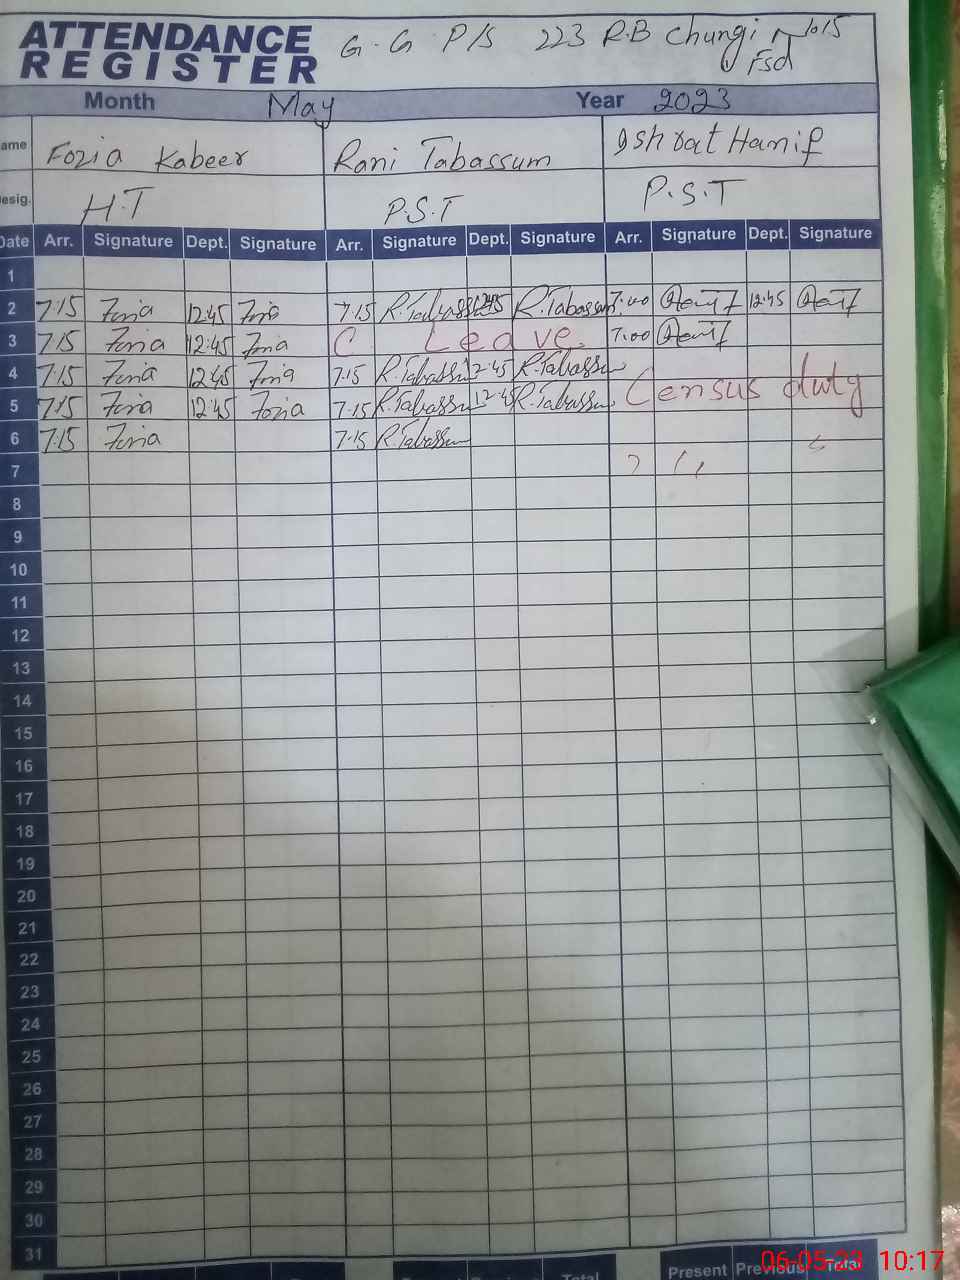 ATTENDANCE REGISTER
G.G P/S 223 R.B Chungi No 15 Fsd
Month May Year 2023
ame Fozia Kabeer Rani Tabassum Ishrat Hanif
esig. H.T P.S.T P.S.T
Date Arr. Signature Dept. Signature Arr. Signature Dept. Signature Arr. Signature Dept. Signature
1
2 7:15 Fozia 12:45 Fozia 7:15 R.Tabassum 12:45 R.Tabassum 7:00 Hanif 12:45 Hanif
3 7:15 Fozia 12:45 Fozia C Leave 7:00 Hanif
4 7:15 Fozia 12:45 Fozia 7:15 R.Tabassum 12:45 R.Tabassum
5 7:15 Fozia 12:45 Fozia 7:15 R.Tabassum 12:45 R.Tabassum Census duty
6 7:15 Fozia 7:15 R.Tabassum
7
8
9
10
11
12
13
14
15
16
17
18
19
20
21
22
23
24
25
26
27
28
29
30
31
Total Present Previous Total
06-05-23 10:17